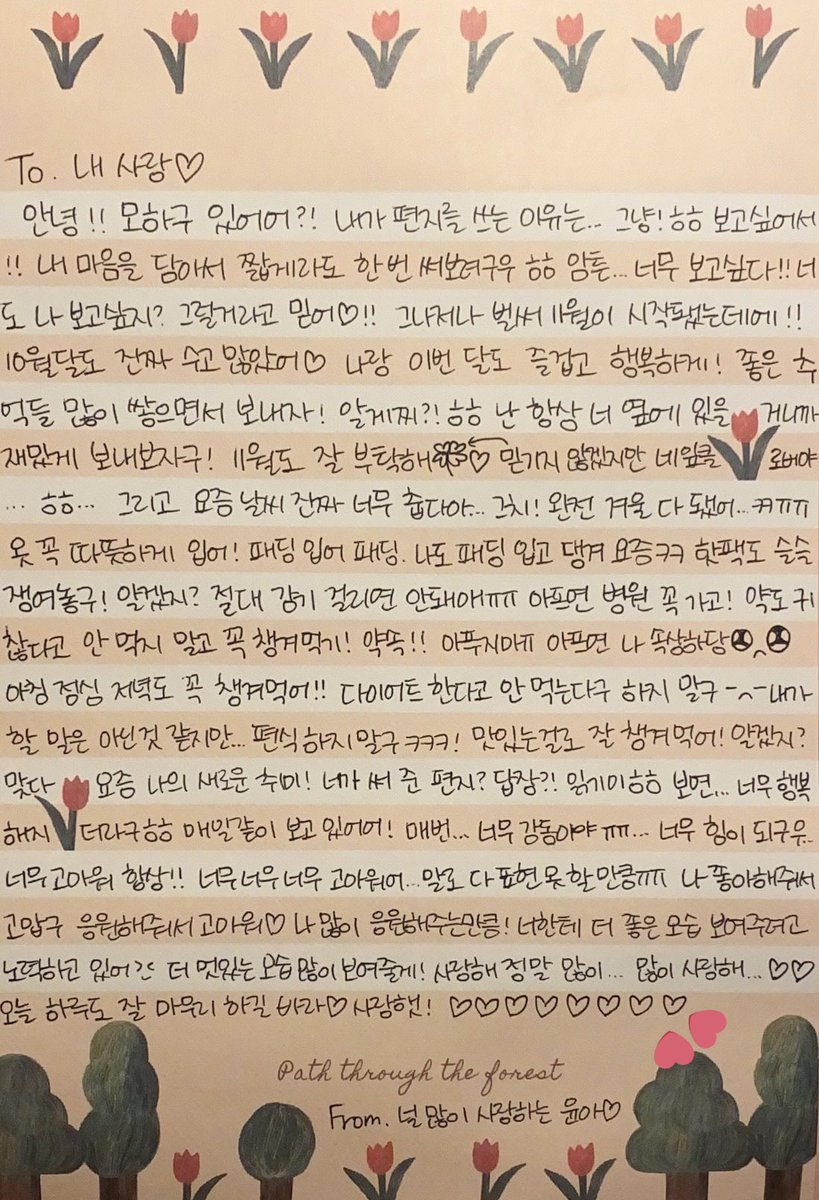 To. 내 사랑♡
안녕!! 모하구 있어어?! 내가 편지를 쓰는 이유는... 그냥! ㅎㅎ 보고싶어서
!! 내 마음을 담아서 짧게라도 한 번 써보려구우 ㅎㅎ 암튼... 너무 보고싶다!! 너
도 나 보고싶지? 그럴거라고 믿어♡!! 그나저나 벌써 11월이 시작됐는데에!!
10월달도 진짜 수고 많았어♡ 나랑 이번 달도 즐겁고 행복하게! 좋은 추
억들 많이 쌓으면서 보내자! 알게찌?! ㅎㅎ 난 항상 너 옆에 있을 거니까
재밌게 보내보자구! 11월도 잘 부탁해 ♡ 믿기지 않겠지만 네잎클로버야
... ㅎㅎ... 그리고 요즘 날씨 진짜 너무 춥다아... 그치! 완전 겨울 다 됐어...ㅋㅠㅠ
옷 꼭 따뜻하게 입어! 패딩 입어 패딩. 나도 패딩 입고 댕겨 요즘ㅋㅋ 핫팩도 슬슬
쟁여놓구! 알겠지? 절대 감기 걸리면 안돼애ㅠㅠ 아프면 병원 꼭 가고! 약도 귀
찮다고 안 먹지 말고 꼭 챙겨먹기! 약쏙!! 아푸지마ㅠ 아프면 나 속상하당
아침 점심 저녁도 꼭 챙겨먹어!! 다이어트 한다고 안 먹는다구 하지 말구 -^- 내가
할 말은 아닌것 같지만... 편식 하지 말구 ㅋㅋㅋ! 맛있는걸로 잘 챙겨 먹어! 알겠지?
맞다 요즘 나의 새로운 취미! 너가 써 준 편지? 답장?! 읽기이ㅎㅎ 보면... 너무 행복
해지더라구ㅎㅎ 매일같이 보고 있어어! 매번... 너무 감동이야 ㅠㅠ... 너무 힘이 되구우..
너무 고아워 항상!! 너무 너무 너무 고아워어...말로 다 표현 못 할 만큼ㅠㅠ 나 좋아해줘서
고압구 응원해줘서 고아워♡ 나 많이 응원해주는만큼! 너한테 더 좋은 모습 보여주려고
노력하고 있어 더 멋있는 모습 많이 보여줄게! 사랑해 정말 많이... 많이 사랑해...♡♡
오늘 하루도 잘 마무리 하길 바라♡ 사랑햇! ♡♡♡♡♡♡♡♡
Path through the forest
From. 널 많이 사랑하는 윤아♡